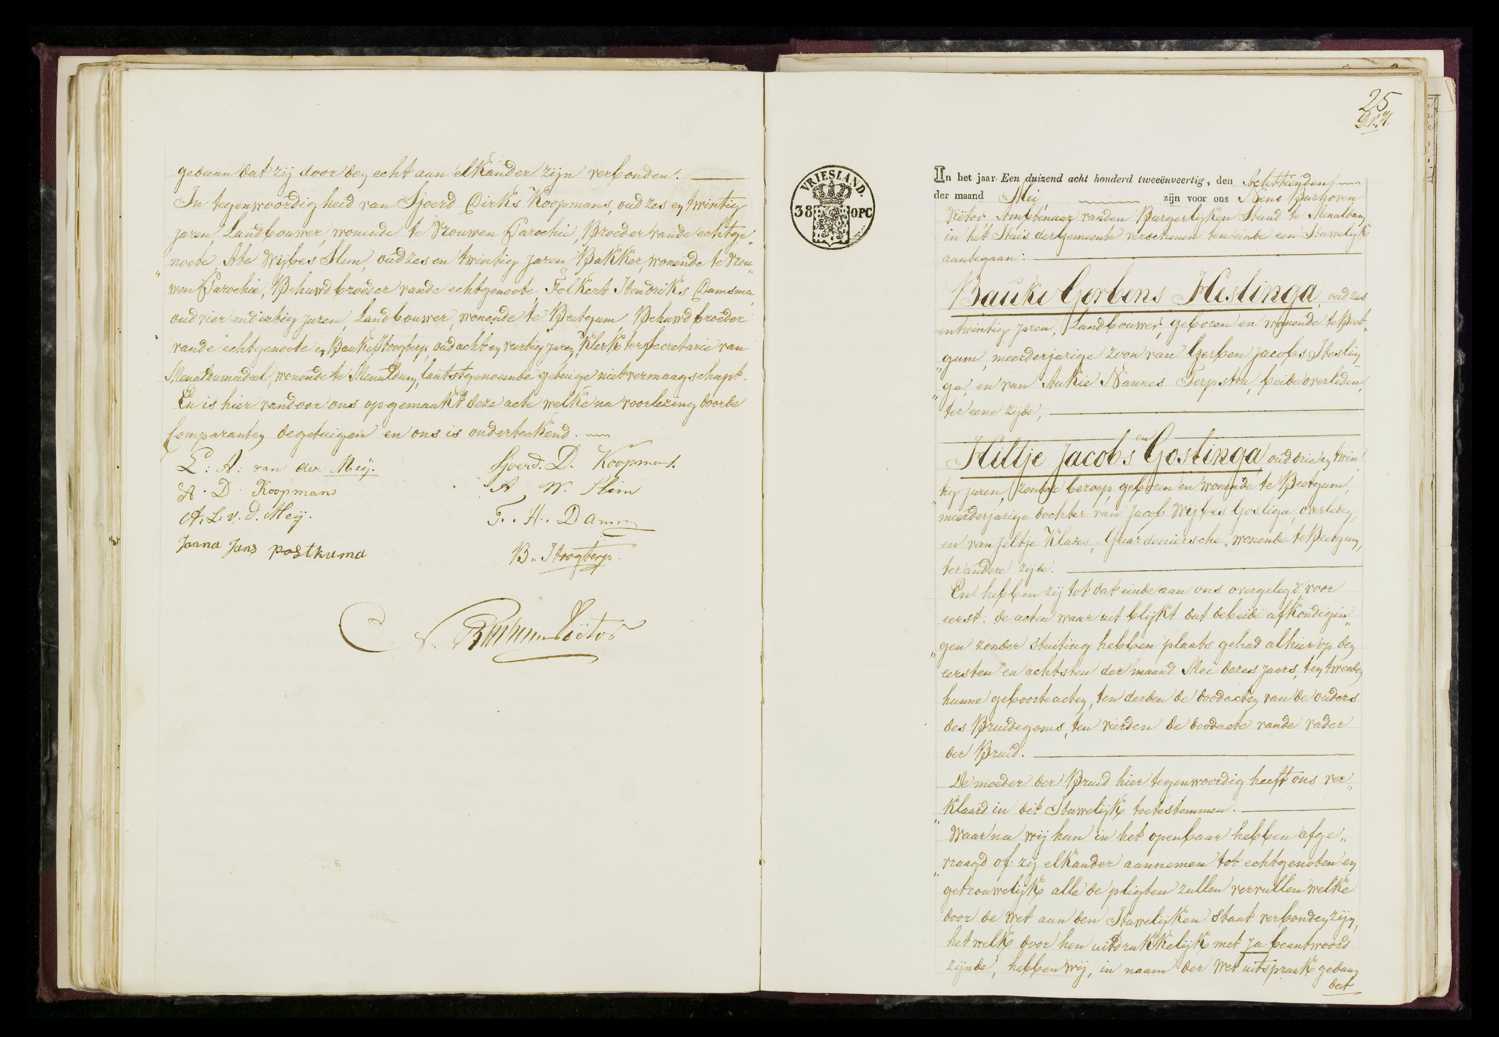 gedaan dat zij door den echt aan elkander zijn verbonden.
In tegenwoordigheid van Sjoerd Dirks Koopmans, oud zes en twintig
jaren, Landbouwer, wonende te Vrouwen Parochie, Broeder vande echtge„
noote, Abe Wijbes Slim, oud zes en twintig jaren Bakker, wonende te Vrou„
„wen Parochie, Behuwdbroeder vande echtgenoote, Folkert Hendriks Damsma,
oud vier en dertig jaren, Landbouwer, wonende te Beetgum, Behuwdbroeder
vande echtgenoote en Bauke Hoogterp, oud acht en veertig jaren Klerk ter secretarie van
Menaldumadeel, wonende te Menaldum, laatstgenoemde getuige niet vermaagschapt.
En is hier van door ons opgemaakt deze acte welke na voorlezing door de
Comparanten de getuigen en ons is onderteekend.
L: A: van der Meij. Sjoerd. D. Koopmans.
A. D Koopmans A W. Slim
A. L. v. d. Meij. F. H. Damsma
Jaana Jans postkuma B. Hoogterp
25
In het jaar Een duizend acht honderd tweeënveertig, den Achttienden
der maand Mei, zijn voor ons
VRIESLAND.
38 OPC
Ambtenaar vanden Burgerlijken Stand te Menaldum,
in het Huis der Gemeente verschenen ten einde een Huwelijk
aantegaan:
Bauke Gerbens Heslinga, oud zes
entwintig jaren, Landbouwer, geboren en wonende te Beet„
„gum, meerderjarige zoon van Gerben Jacobs Heslin„
„ga, en van Aukje Nannes Terpstra, beide overleden,
ter eene zijde,
en
Hiltje Jacobs Goslinga oud drie en twin„
tig jaren, zonder beroep, geboren en wonende te Beetgum,
meerderjarige dochter van Jacob Wijbes Goslinga, overleden,
en van Jeltje Klazes, Guardeniersche, wonende te Beetgum,
ter andere zijde.
En hebben zij tot dat einde aan ons overgelegd, voor
eerst: de acten waar uit blijkt dat de beide afkondigin„
„gen zonder stuiting hebben plaats gehad alhier op den
eersten en achtsten der maand Mei dezes jaars, ten tweeden
hunne geboorteacten, ten derden de doodacten van de ouders
des Bruidegoms, ten vierden de doodacte vande vader
der Bruid.
De moeder der Bruid hier tegenwoordig heeft ons ver„
„klaard in dit Huwelijk toetestemmen.
Waarna wij hun in het openbaar hebben afge„
„vraagd of zij elkander aannemen tot echtgenoten en
getrouwelijk alle de pligten zullen vervullen welke
door de Wet aan den Huwelijken Staat verbonden zijn,
het welk door hen uitdrukkelijk met ja beantwoord
zijnde, hebben wij, in naam der Wet uitspraak gedaan
dat